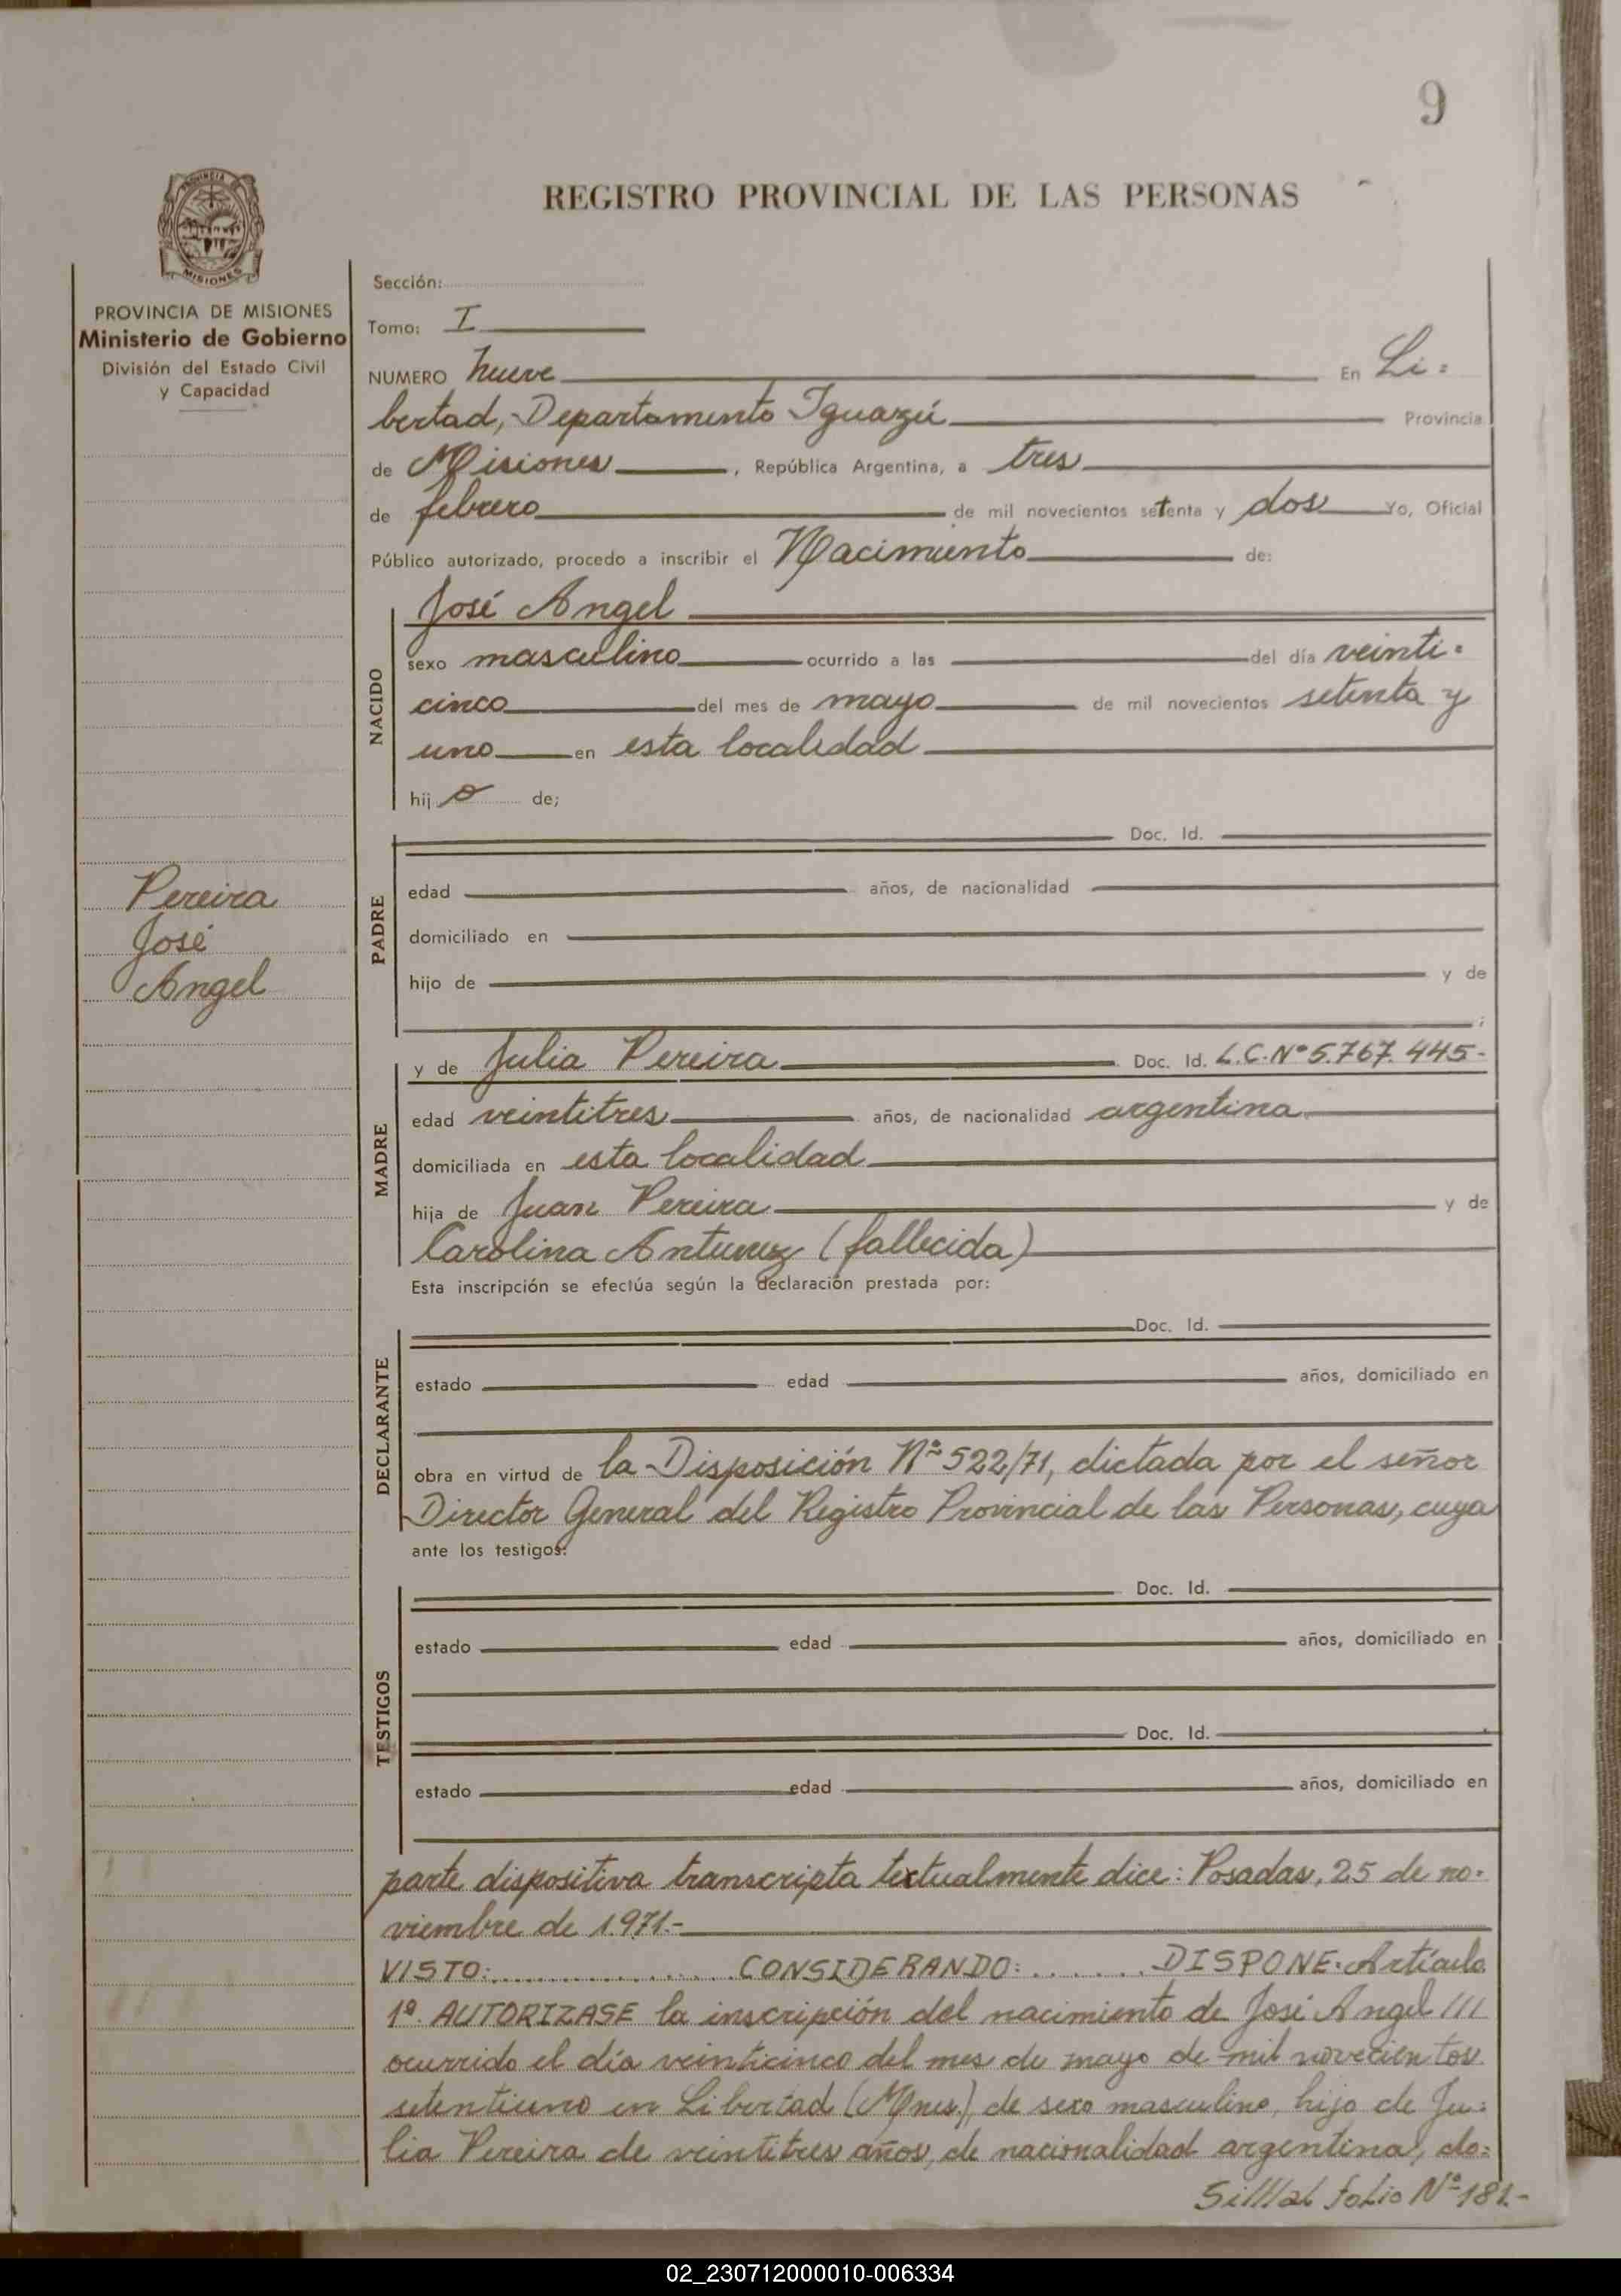 9
PROVINCIA DE
MISIONES
REGISTRO PROVINCIAL DE LAS PERSONAS
PROVINCIA DE MISIONES
Ministerio de Gobierno
División del Estado Civil
y Capacidad
Sección:
Tomo: I
NUMERO nueve En Li=
bertad, Departamento Iguazú Provincia
de Misiones, República Argentina, a tres
de febrero de mil novecientos setenta y dos Yo, Oficial
Público autorizado, procedo a inscribir el Nacimiento de:
NACIDO
José Angel
sexo masculino ocurrido a las del día veinti=
cinco del mes de mayo de mil novecientos setenta y
uno en esta localidad
hijo de;
Pereira
José
Angel
PADRE
Doc. Id.
edad años, de nacionalidad
domiciliado en
hijo de y de
;
MADRE
y de Julia Pereira Doc. Id. L.C. Nº 5.767.445-
edad veintitres años, de nacionalidad argentina
domiciliada en esta localidad
hija de Juan Pereira y de
Carolina Antunez (fallecida)
Esta inscripción se efectúa según la declaración prestada por:
DECLARANTE
Doc. Id.
estado edad años, domiciliado en
obra en virtud de la Disposición Nº 522/71, dictada por el señor
Director General del Registro Provincial de las Personas, cuya
ante los testigos:
TESTIGOS
Doc. Id.
estado edad años, domiciliado en
Doc. Id.
estado edad años, domiciliado en
parte dispositiva transcripta textualmente dice: Posadas, 25 de no=
viembre de 1.971.-
VISTO:................ CONSIDERANDO: ....... DISPONE: Artículo
1º. AUTORIZASE la inscripción del nacimiento de José Angel ///
ocurrido el día veinticinco del mes de mayo de mil novecientos
setentiuno en Libertad (Mnes.), de sexo masculino, hijo de Ju=
lia Pereira de veintitres años, de nacionalidad argentina, do=
Si///al folio Nº 181.-
02_230712000010-006334